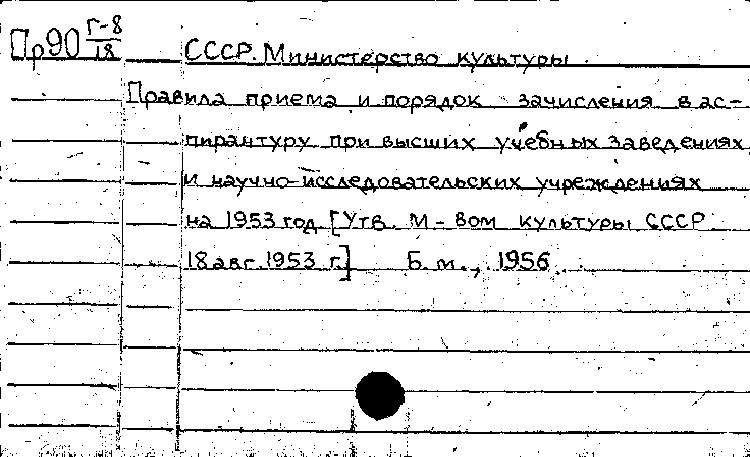 Пр90 Г-8/18
СССР. Министерство культуры.
Правила приема и порядок зачисления в ас-
пирантуру при высших учебных заведениях
и научно-исследовательских учреждениях
на 1953 год. [Утв. М-вом культуры СССР
18 авг. 1953 г.] Б. м., 1956.